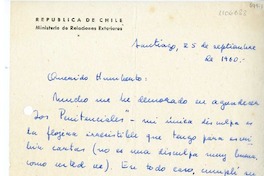 REPUBLICA DE CHILE
Ministerio de Relaciones Exteriores
Santiago, 25 de septiembre
de 1960.
Querido Humberto:
Mucho me he demorado en agradecer
"Los Penitenciales" – mi única disculpa es
la flojera irresistible que tengo para escri
bir cartas (no es una disculpa muy buena,
como usted ve). En todo caso, cumplí su